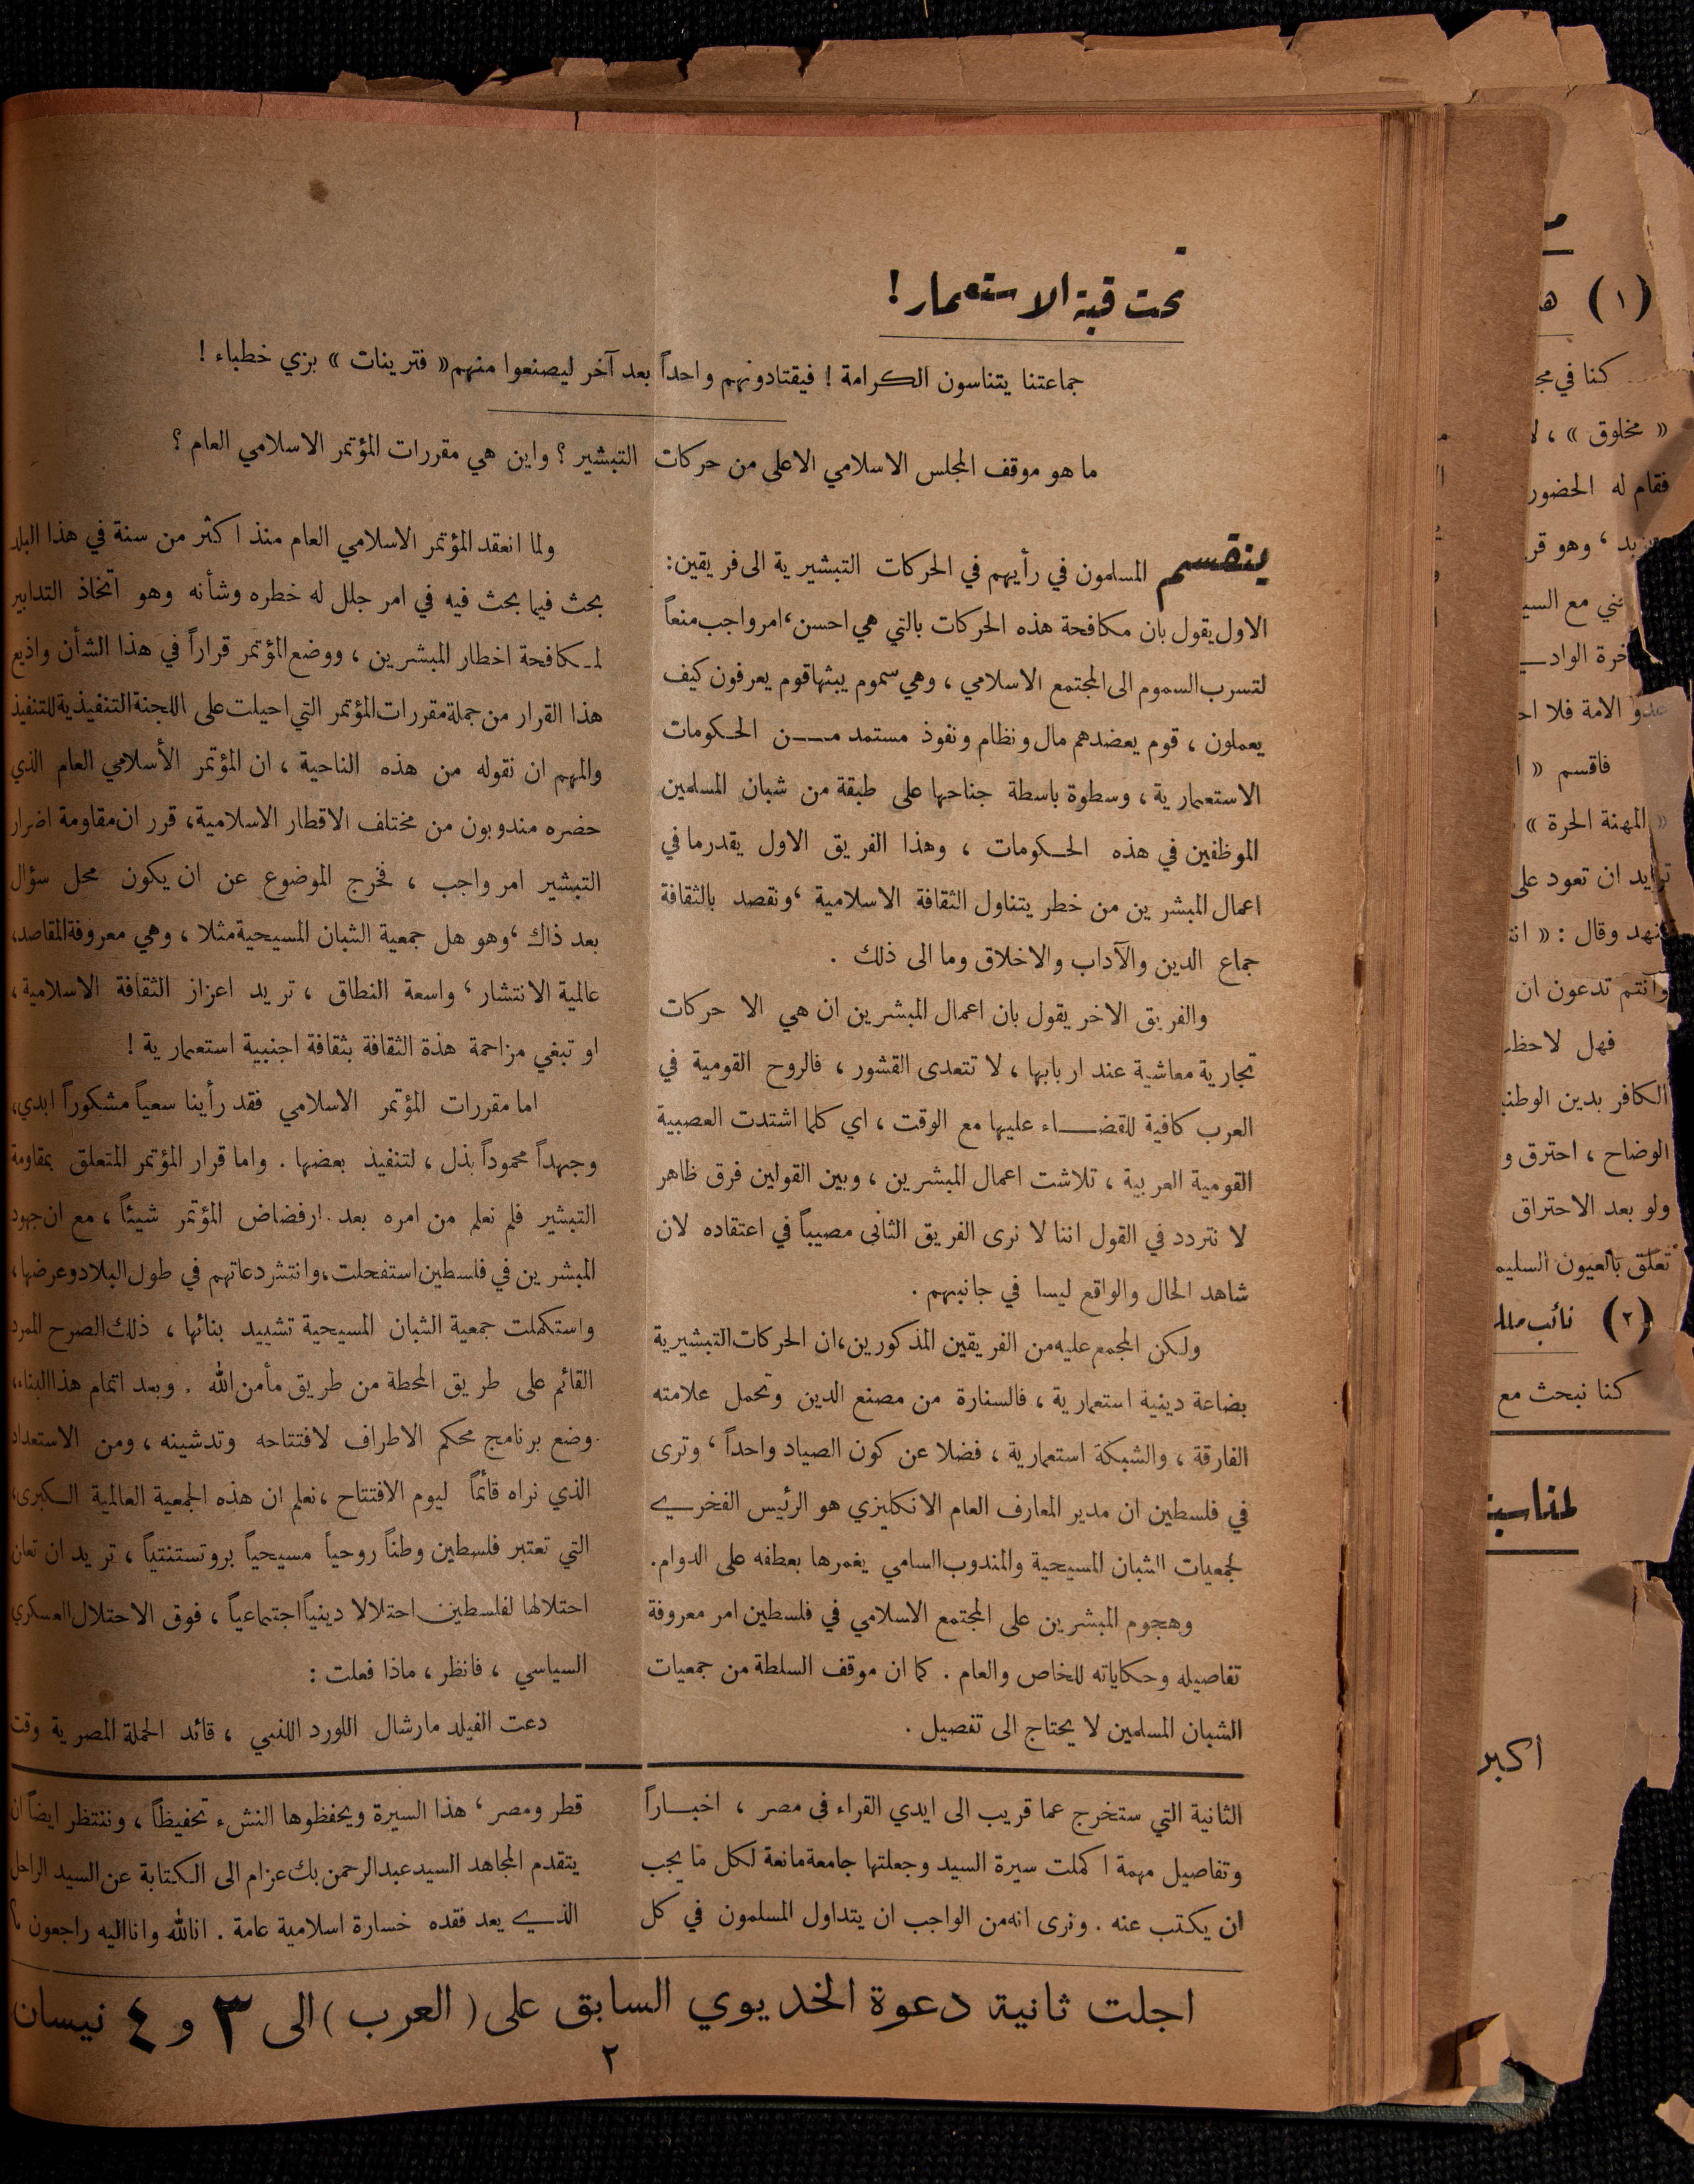 تحت قبة الاستعمار !
جماعتنا يتناسون الكرامة ! فيقتادونهم واحداً بعد آخر ليصنعوا منهم « فترينات » بزي خطباء !
ما هو موقف المجلس الاسلامي الاعلى من حركات التبشير ؟ واين هي مقررات المؤتمر الاسلامي العام ؟
ينقسم المسلمون في رأيهم في الحركات التبشيرية الى فريقين :
الاول يقول بان مكافحة هذه الحركات بالتي هي احسن ، امر واجب منعاً
لتسرب السموم الى المجتمع الاسلامي ، وهي سموم يبثها قوم يعرفون كيف
يعملون ، قوم يعضدهم مال ونظام ونفوذ مستمد من الحكومات
الاستعمارية ، وسطوة باسطة جناحها على طبقة من شبان المسلمين
الموظفين في هذه الحكومات ، وهذا الفريق الاول يقدر ما في
اعمال المبشرين من خطر يتناول الثقافة الاسلامية ، ونقصد بالثقافة
جماع الدين والآداب والاخلاق وما الى ذلك .
والفريق الاخر يقول بان اعمال المبشرين ان هي الا حركات
تجارية معاشية عند اربابها ، لا تتعدى القشور ، فالروح القومية في
العرب كافية للقضاء عليها مع الوقت ، اي كلما اشتدت العصبية
القومية العربية ، تلاشت اعمال المبشرين ، وبين القولين فرق ظاهر
لا نتردد في القول اننا لا نرى الفريق الثاني مصيباً في اعتقاده لان
شاهد الحال والواقع ليسا في جانبهم .
ولكن المجمع عليه من الفريقين المذكورين ، ان الحركات التبشيرية
بضاعة دينية استعمارية ، فالسنارة من مصنع الدين وتحمل علامته
الفارقة ، والشبكة استعمارية ، فضلا عن كون الصياد واحداً ، وترى
في فلسطين ان مدير المعارف العام الانكليزي هو الرئيس الفخري
لجمعيات الشبان المسيحية والمندوب السامي يغمرها بعطفه على الدوام .
وهجوم المبشرين على المجتمع الاسلامي في فلسطين امر معروفة
تفاصيله وحكاياته للخاص والعام . كما ان موقف السلطة من جمعيات
الشبان المسلمين لا يحتاج الى تفصيل .
ولما انعقد المؤتمر الاسلامي العام منذ اكثر من سنة في هذا البلد
بحث فيما بحث فيه في امر جلل له خطره وشأنه وهو اتخاذ التدابير
لمكافحة اخطار المبشرين ، ووضع المؤتمر قراراً في هذا الشأن واذيع
هذا القرار من جملة مقررات المؤتمر التي احيلت على اللجنة التنفيذية للتنفيذ
والمهم ان نقوله من هذه الناحية ، ان المؤتمر الأسلامي العام الذي
حضره مندوبون من مختلف الاقطار الاسلامية ، قرر ان مقاومة اضرار
التبشير امر واجب ، فخرج الموضوع عن ان يكون محل سؤال
بعد ذاك ، وهو هل جمعية الشبان المسيحية مثلا ، وهي معروفة المقاصد ،
عالمية الانتشار ، واسعة النطاق ، تريد اعزاز الثقافة الاسلامية ،
او تبغي مزاحمة هذة الثقافة بثقافة اجنبية استعمارية !
اما مقررات المؤتمر الاسلامي فقد رأينا سعياً مشكوراً ابدي ،
وجهداً محموداً بذل ، لتنفيذ بعضها . واما قرار المؤتمر المتعلق بمقاومة
التبشير فلم نعلم من امره بعد ارفضاض المؤتمر شيئاً ، مع ان جهود
المبشرين في فلسطين استفحلت ، وانتشر دعاتهم في طول البلاد وعرضها ،
واستكملت جمعية الشبان المسيحية تشييد بنائها ، ذلك الصرح الممرد
القائم على طريق المحطة من طريق مأمن الله . وبعد اتمام هذا البناء ،
وضع برنامج محكم الاطراف لافتتاحه وتدشينه ، ومن الاستعداد
الذي نراه قائماً ليوم الافتتاح ، نعلم ان هذه الجمعية العالمية الكبرى ،
التي تعتبر فلسطين وطناً روحياً مسيحياً بروتستنتياً ، تريد ان تعلن
احتلالها لفلسطين احتلالا دينياً اجتماعياً ، فوق الاحتلال العسكري
السياسي ، فانظر ، ماذا فعلت :
دعت الفيلد مارشال اللورد اللنبي ، قائد الحملة المصرية وقت
الثانية التي ستخرج عما قريب الى ايدي القراء في مصر ، اخباراً
وتفاصيل مهمة اكملت سيرة السيد وجعلتها جامعة مانعة لكل ما يجب
ان يكتب عنه . ونرى انه من الواجب ان يتداول المسلمون في كل
قطر ومصر ، هذا السيرة ويحفظوها النشء تحفيظاً ، وننتظر ايضاً ان
يتقدم المجاهد السيد عبد الرحمن بك عزام الى الكتابة عن السيد الراحل
الذي يعد فقده خسارة اسلامية عامة . انا لله وانا اليه راجعون
اجلت ثانية دعوة الخديوي السابق على ( العرب ) الى ٣ و ٤ نيسان
٢
(١)
كنا في
« مخلوق » ، لا
فقام له الحضور
وهو
مع السيد
عدو الامة فلا
فاقسم «
« المهنة الحرة »
ان تعود على
وقال : «
وانتم تدعون ان
فهل
الكافر بدين
الوضاح ، احترق و
ولو بعد الاحتراق
تعلق بالعيون
(٢) نائب
كنا نبحث مع
اكبر